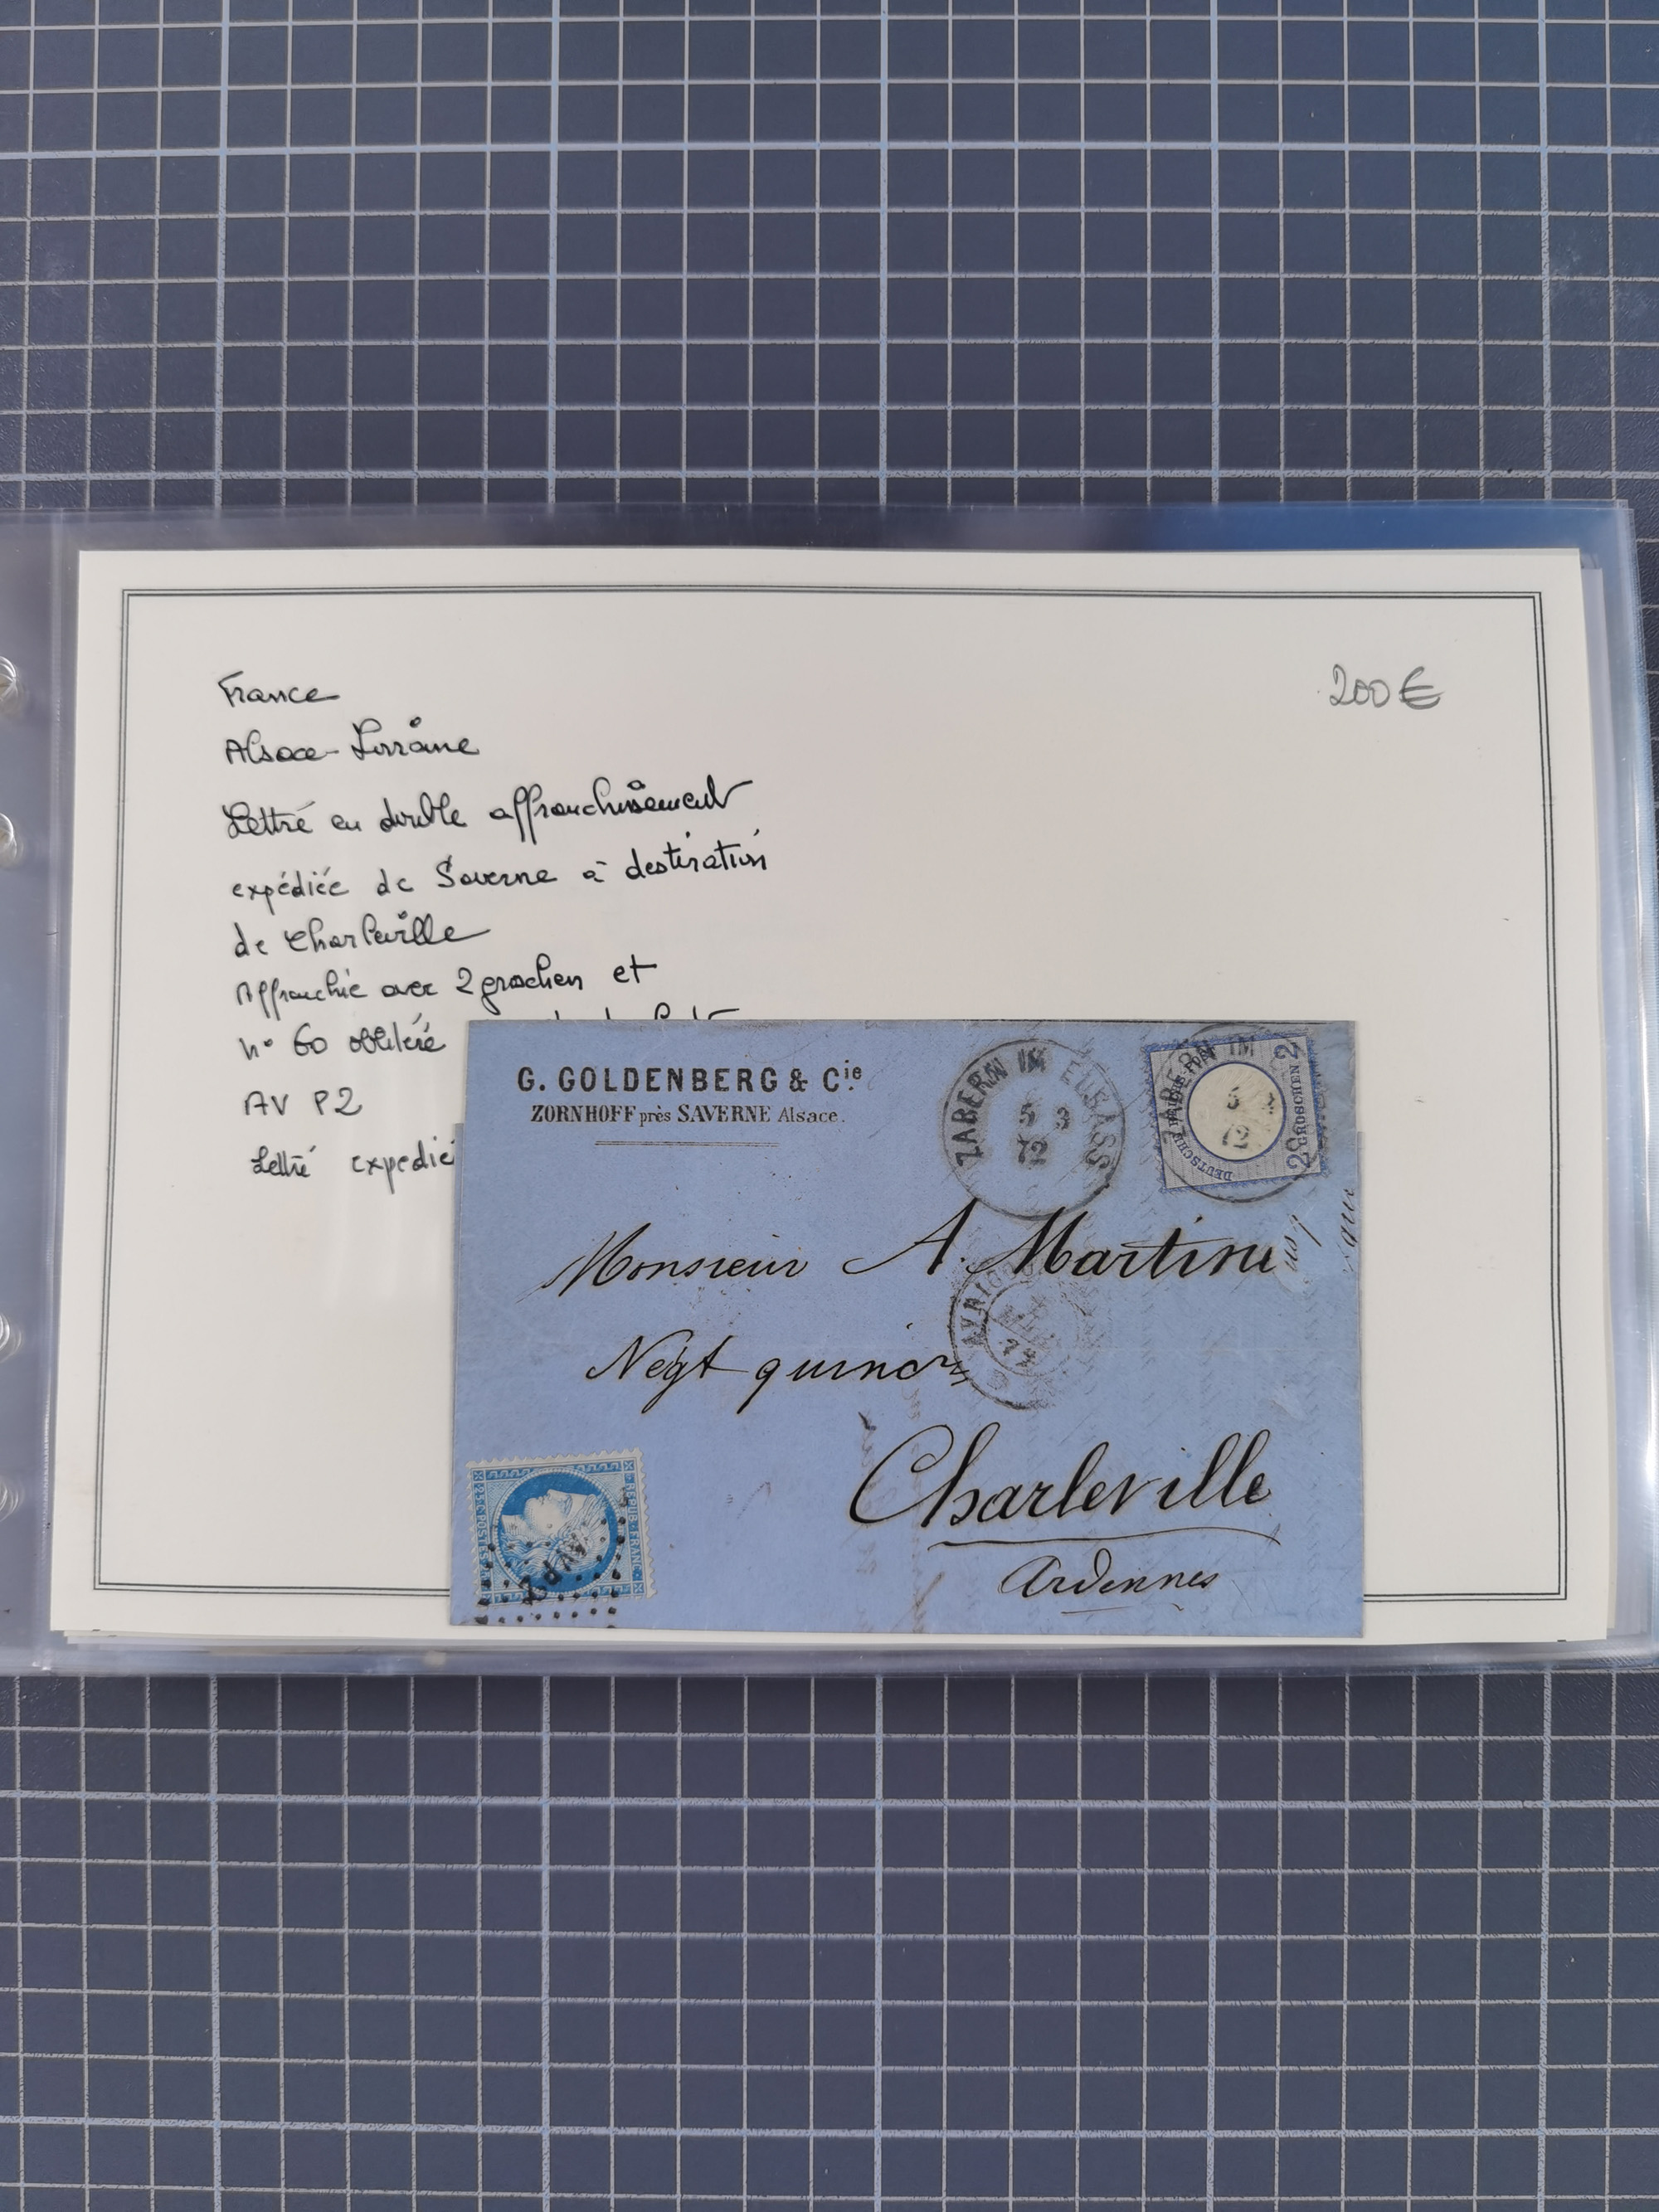 France
200€
Alsace-Lorraine
Lettre en double affranchissement
expédiée de Saverne à destination
de Charleville
Affranchie avec 2 groschen et
n° 60 oblitéré
AV P2
Lettre expédié
G. GOLDENBERG & Cie.
ZORNHOFF près SAVERNE Alsace.
ZABERN IM ELSASS
5 3
72
ZABERN IM
5 3
72
DEUTSCHE REICHS-POST
2 GROSCHEN 2
Monsieur A. Martin
Negt quinc
AVRIC
Charleville
Ardennes
REPUB. FRANC.
25 c POSTES 25 c
AVP2